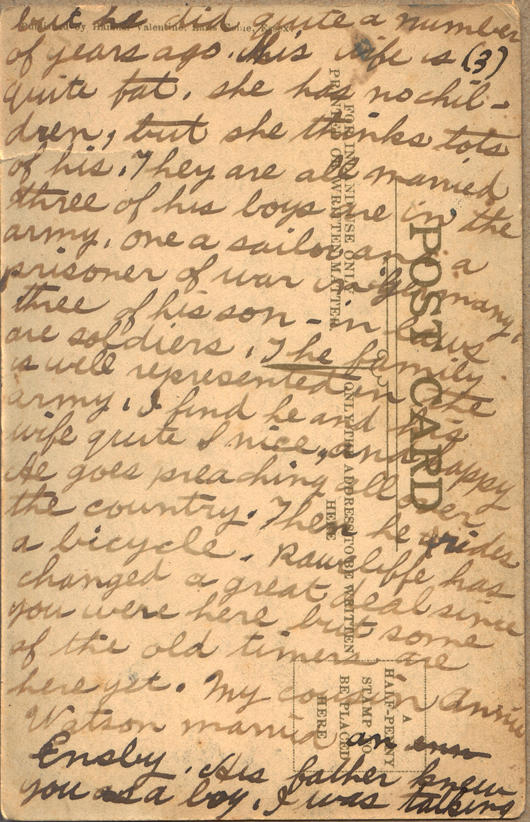 but he did quite a number
of years ago. His wife is (3)
quite fat, she has no chil-
dren, but she thinks lots
of his. They are all married
three of his boys are in the
army, one a sailor and a
prisoner of war in Germany,
three of his son-in-laws
are soldiers. The family
is well represented in the
army. I find he and his
wife quite nice, and happy
He goes preaching all over
the country. Then he rides
a bicycle. Rawcliffe has
changed a great deal since
you were here but some
of the old timers are
here yet. My cousin Annie
Watson married an
Ensby. His father knew
you as a boy. I was talking
Published by Hannah Valentine,
POST CARD
FOR INLAND USE ONLY
PRINTED OR WRITTEN MATTER
ONLY THE ADDRESS TO BE WRITTEN
HERE
A
HALF-PENNY
STAMP TO
BE PLACED
HERE